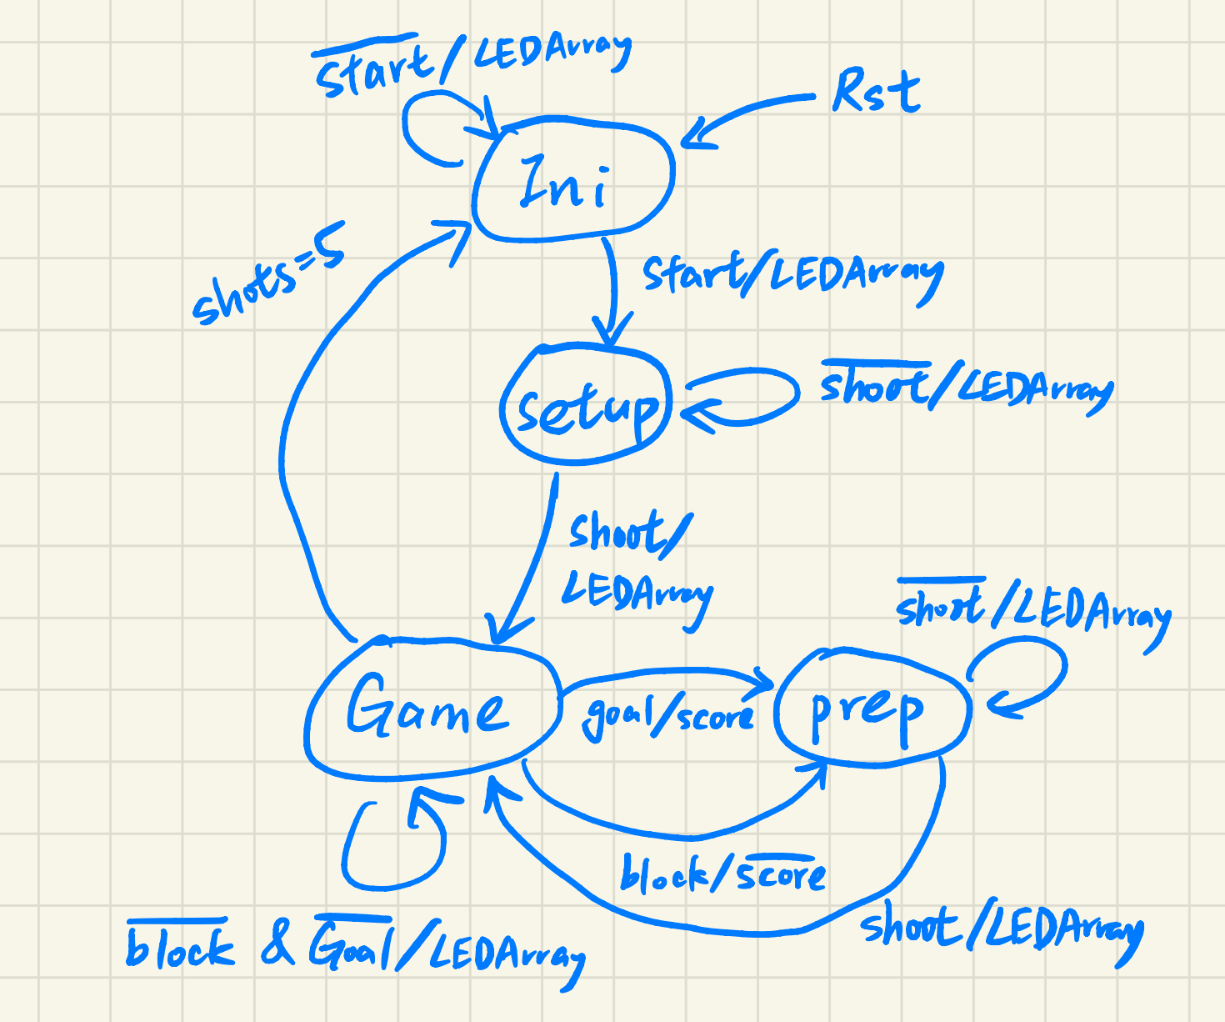 s̅t̅a̅r̅t̅/LEDArray
Rst
Ini
shots=5
Start/LEDArray
setup
s̅h̅o̅o̅t̅/LEDArray
shoot/
LEDArray
s̅h̅o̅o̅t̅/LEDArray
Game
goal/score
prep
block/s̅c̅o̅r̅e̅
shoot/LEDArray
b̅l̅o̅c̅k̅ & G̅o̅a̅l̅/LEDArray